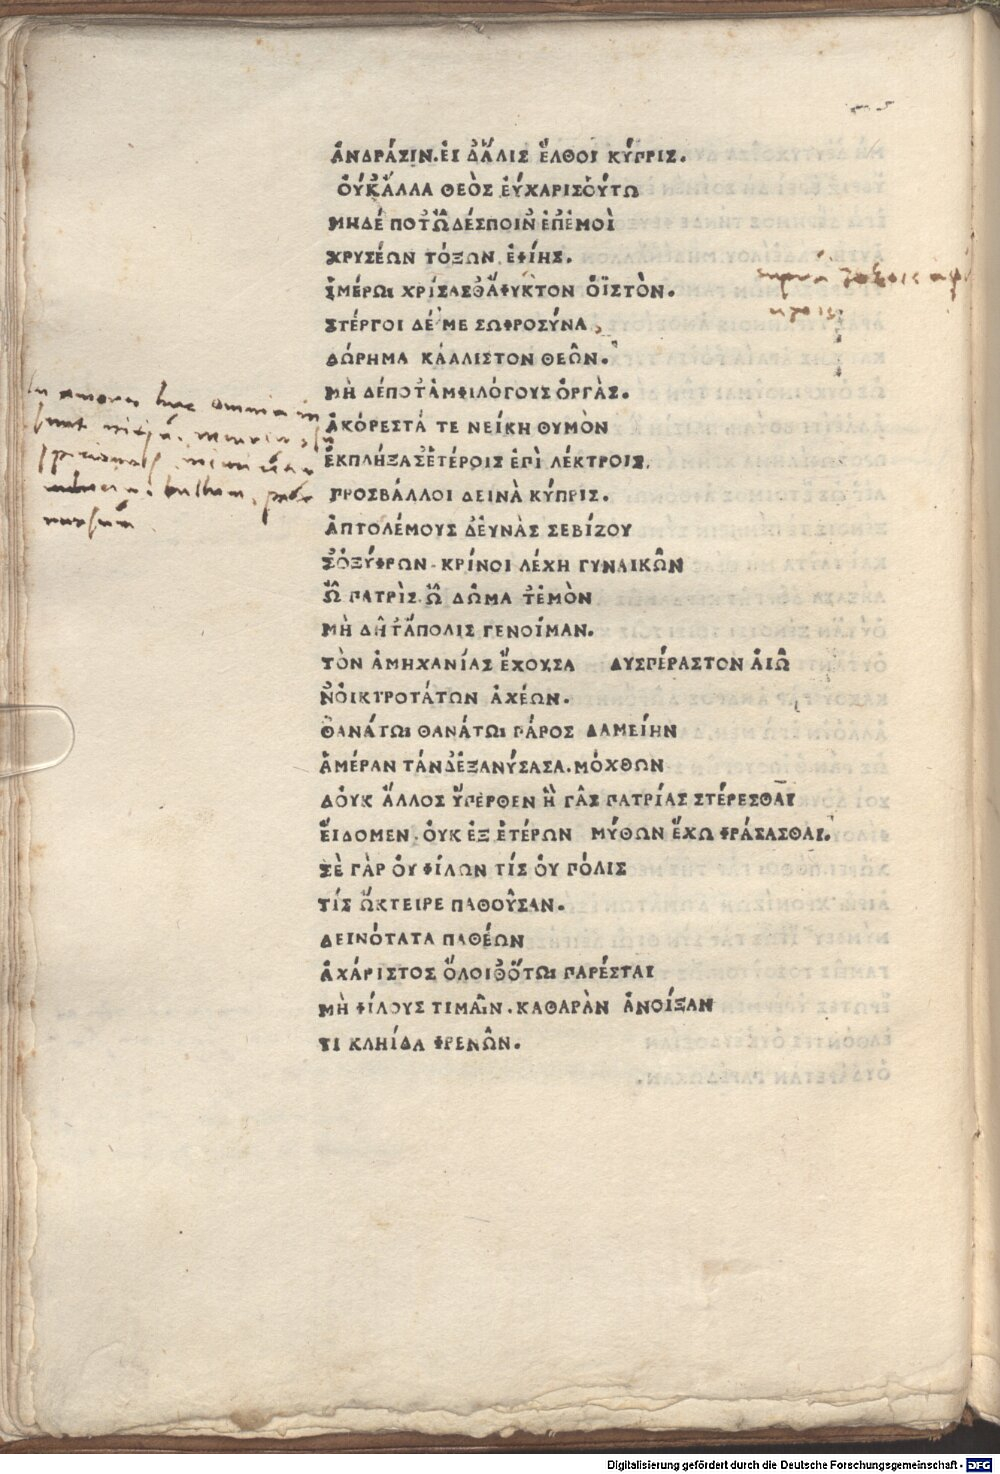 ἈΝΔΡΆΣΙΝ. ΕΙ Δ᾽ἍΛΙΣ ἜΛΘΟΙ ΚΎΠΡΙΣ.
ΟΎΚ ἌΛΛΑ ΘΕῸΣ ἘΎΧΑΡΙΣ ΟΎΤΩ
ΜΗΔΈ ΠΟΤ᾽ Ὦ ΔΈΣΠΟΙΝ᾽ ἘΠ᾽ ἘΜΟῚ
ΧΡΥΣΈΩΝ ΤΌΞΩΝ ἘΦΊΗΣ.
ἹΜΈΡΩΙ ΧΡΊΣΑΣ᾽ ἌΦΥΚΤΟΝ ὈΪΣΤῸΝ.
ΣΤΈΡΓΟΙ ΔΈ ΜΕ ΣΩΦΡΟΣΎΝΑ,
ΔΏΡΗΜΑ ΚΆΛΛΙΣΤΟΝ ΘΕΩ͂Ν.
ΜῊ ΔΈ ΠΟΤ᾽ ἈΜΦΙΛΌΓΟΥΣ ὈΡΓᾺΣ.
ἈΚΌΡΕΣΤΆ ΤΕ ΝΕΊΚΗ ΘΥΜῸΝ
ἘΚΠΛΉΞΑΣ᾽ ἙΤΈΡΟΙΣ ἘΠῚ ΛΈΚΤΡΟΙΣ.
ΠΡΟΣΒΆΛΛΟΙ ΔΕΙΝᾺ ΚΎΠΡΙΣ.
ἈΠΤΟΛΈΜΟΥΣ Δ᾽ ἘΥΝᾺΣ ΣΕΒΊΖΟΥ
Σ᾽ ὈΞΎΦΡΩΝ. ΚΡΊΝΟΙ ΛΈΧΗ ΓΥΝΑΙΚΩ͂Ν
Ὦ ΠΑΤΡῚΣ. Ὦ ΔΩ͂ΜΑ Τ᾽ ἘΜῸΝ
ΜῊ ΔΗ͂Τ᾽ ἌΠΟΛΙΣ ΓΕΝΟΊΜΑΝ.
ΤῸΝ ἈΜΗΧΑΝΊΑΣ ἜΧΟΥΣΑ ΔΥΣΠΈΡΑΣΤΟΝ ἈΙΩ͂
Ν᾽ ΟἸΚΤΡΟΤΆΤΩΝ ἈΧΈΩΝ.
ΘΑΝΆΤΩΙ ΘΑΝΆΤΩΙ ΠΆΡΟΣ ΔΑΜΕΊΗΝ
ἉΜΈΡΑΝ ΤΆΝΔ᾽ ἘΞΑΝΎΣΑΣΑ. ΜΌΧΘΩΝ
Δ᾽ ΟΎΚ ἌΛΛΟΣ ὝΠΕΡΘΕΝ Ἢ ΓΑ͂Σ ΠΑΤΡΊΑΣ ΣΤΈΡΕΣΘΑΙ
ἘΊΔΟΜΕΝ. ὈΥΚ ἘΞ ἙΤΈΡΩΝ ΜΎΘΩΝ ἜΧΩ ΦΡΆΣΑΣΘΑΙ.
ΣῈ ΓᾺΡ ὈΥ ΦΊΛΩΝ ΤΊΣ ὈΥ ΠΌΛΙΣ
ΤΊΣ ὬΚΤΕΙΡΕ ΠΑΘΟΥ͂ΣΑΝ.
ΔΕΙΝΌΤΑΤΑ ΠΑΘΈΩΝ
ἈΧΆΡΙΣΤΟΣ ὌΛΟΙΘ᾽ ὍΤΩΙ ΠΆΡΕΣΤΑΙ
ΜῊ ΦΊΛΟΥΣ ΤΙΜΑ͂ΙΝ. ΚΑΘΑΡᾺΝ ἈΝΟΊΞΑΝ
ΤΙ ΚΛΗΪ́ΔΑ ΦΡΕΝΩ͂Ν.
In amore haec omnia in
sunt
bellum, pax
rursum
Digitalisierung gefördert durch die Deutsche Forschungsgemeinschaft - DFG